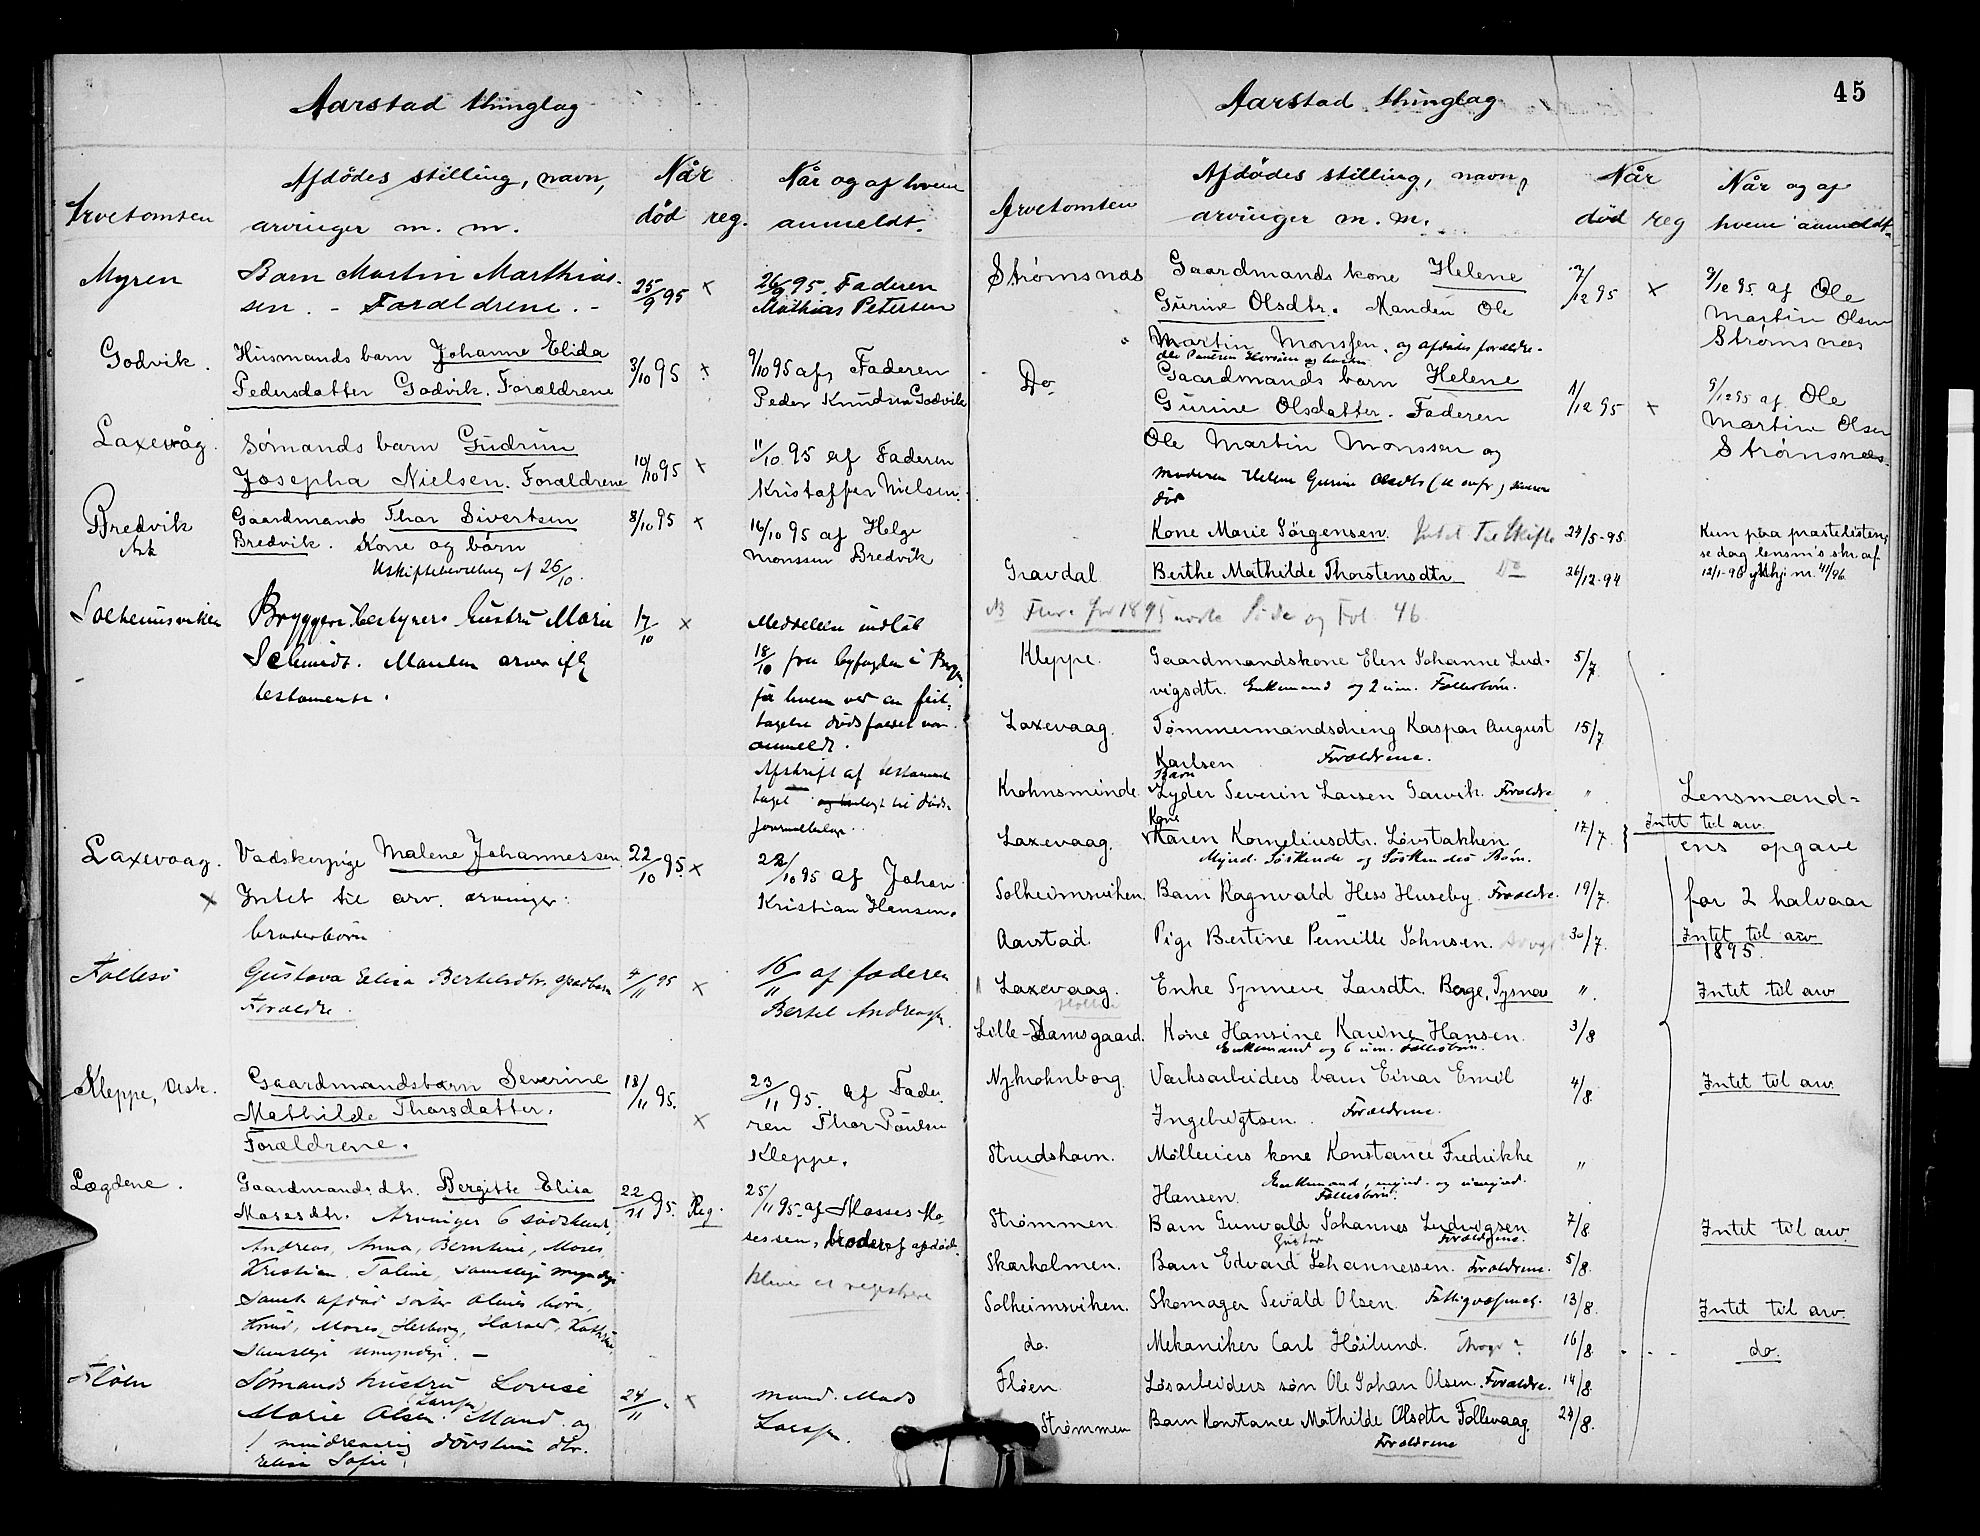 Aarstad thinglag
Arvetomten
Afdødes stilling, navn,
arvinger m. m.
Når
død reg.
Når og af hvem
anmeldt.
Myren
Barn Martin Marthias-
sen. - Forældrene. -
25/9 95
x
26/9 95. Faderen
Mathias Petersen
Godvik.
Husmands barn Johanne Elida
Pedersdatter Godvik. Forældrene
3/10 95
x
9/10 95 af Faderen
Peder Knudsen Godvik
Laxevåg.
Sømands barn Gudrun
Josepha Nielsen. Forældrene
10/10 95
x
11/10 95 af Faderen
Kristoffer Nielsen.
Bredvik
Ask
Gaardmands Thor Sivertsen
Bredvik. Kone og børn
Uskiftebevilling af 26/10.
8/10 95
x
16/10 95 af Helge
Monssen Bredvik
Solheimsviken
Bryggeribestyrers hustru Marie
Schmidt. Manden arver iflg
testamente.
17/10
x
Meddelelse indløb
18/10 fra byfogden i Bergen
for hvem ved en feil-
tagelse dødsfaldet var
anmeldt.
Afskrift af testamente
taget og henlagt til døds-
journalbilage.
Laxevaag.
x
Vadskerpige Malene Johannessen
Intet til arv. arvinger:
broderbørn
22/10 95.
x
22/10 95 af Johan
Kristian Hansen.
Follesø
Gustava Elisa Bertelsdtr. spædbarn
Forældre.
4/11 95
x
16/11 af faderen
Bertel Andreassen.
Kleppe, Ask.
Gaardmandsbarn Severine
Mathilde Thorsdatter.
Forældrene.
18/11 95.
x
23/11 95. af Fade-
ren Thor Paulsen
Kleppe.
Lægdene.
Gaardmands dtr. Bergitte Elisa
Mosesdtr. Arvinger 6 sødskende
Andreas, Anna, Berntine, Moses,
Kristian, Taline, samtlige myndige
samt afdød søster Alines børn,
Knud, Moses, Herborg, Harald, Kathrine
samtlige umyndige. -
22/11 95.
Reg.
25/11 95. af Mosses Mo-
sessen, broder af afdøde.
bliver at registrere
Fløen
Sømands hustru Lovise
(Larsen)
Marie Olsen. Mand og
1 mindreaarig døvstum dtr.
Elisa Sofie.
24/11
x
mand. Mads
Larssen.
45
Aarstad thinglag
Arvetomten
Afdødes stilling, navn,
arvinger m. m.
Når
død reg
Når og af
hvem anmeldt.
Strømsnæs
Gaardmands kone Helene
Gurine Olsdtr. Manden Ole
Martin Monssen. og afdødes forældre.
7/12 95
x
9/12 95. af Ole
Martin Olsen
Strømsnæs
Do
Gaardmands barn Helene
Gurine Olsdatter. Faderen
Ole Martin Monssen og
moderen Helene Gurine Olsdtr (se ovfr.) senere
død
1/12 95
x
9/12 95 af Ole
Martin Olsen
Strømsnæs.
Kone Marie Jörgensen. Intet til Skifte
24/5-95.
Kun paa præstelisten,
se dog lensm's skr. af
Gravdal
Berthe Mathilde Thorstensdtr Do
26/12-94
12/1-96 jr. 41/96.
NB Flere for 1895 næste Side og Fol. 46.
Kleppe.
Gaardmandskone Elen Johanne Lud-
vigsdtr. Enkemand og 2 um. Fællesbørn.
5/7.
Laxevaag.
Tømmermandsdreng Kaspar August
Karlsen Forældrene.
15/7
Krohnsminde.
Barn
Lyder Severin Larsen Garvik. Forældre
"
Lensmand-
Laxevaag.
Kone
Karen Korneliusdtr. Løvstakken
Mynd. Søskende og Søskendes Børn.
17/7.
Intet til arv
ens opgave
Solheimsviken.
Barn Ragnvald Hess Huseby. Forældre.
19/7.
for 2 halvaar
Aarstad.
Pige Bertine Pernille Johnsen.
30/7.
Intet til arv
1895.
Laxevaag.
Enke Synneve Larsdtr. Berge, Tysnes
".
Intet til arv
Lille-Damsgaard.
Kone Hansine Karine Hansen.
Enkemand og 6 um. Fællesbørn.
3/8
Nykrohnborg.
Værksarbeiders barn Einar Emil
Ingebrigtsen. Forældrene.
4/8.
Intet til arv
Strudshavn.
Mølleeiers kone Konstance Fredrikke
Hansen. Enkemand, mynd. og umynd.
Fællesbørn.
"
Strømmen.
Barn Gunvald Johannes Ludvigsen
Forældrene.
7/8.
Intet til arv.
Skarholmen.
Gustav
Barn Edvard Johannessen. Forældrene.
5/8.
Solheimsviken.
Skomager Sevald Olsen. Fattigvæsenet.
13/8.
Intet til arv.
do.
Mekaniker Carl Høilund.
16/8.
do.
Fløen.
Løsarbeiders søn Ole Johan Olsen. Forældre.
14/8.
Strømmen
Barn Konstance Mathilde Olsdtr Follevaag.
Forældrene
24/8.